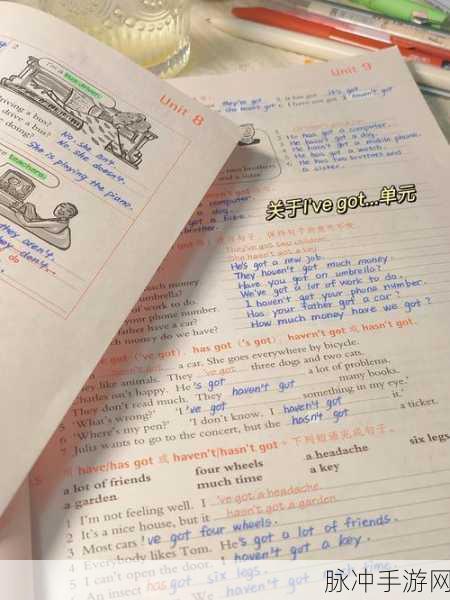 Unit 8
2
I'm a bus driver.
driving a bus?
drive a bus?
doing?
No, she isn't.
No, she doesn't.
She is playing the piano.
teachers.
they aren't.
they don't.
do
Unit 9
they've got
it's got
I have got
haven't got
3 He has got a computer.
He hasn't got a dog.
He hasn't got a mobile phone.
He has got a watch.
He has two brothers and
a sister.
two brothers
and a sister
computer.
a dog.
brother.
关于I've got...单元
They've got two children.
She hasn't got a key.
He's got a new job.
They haven't got much money.
Have you got an umbrella?
We've got a lot of work to do.
I haven't got your phone number.
Has your father got a car?
How much money have we got?
much money.
umbrella?
of work to do.
your phone number.
father have a car?
money do we have?
got ('ve got), has got ('s got), haven't got 或 hasn't got.
hasn't got a car. She goes everywhere by bicycle.
They like animals. They 've got three dogs and two cats.
Charles isn't happy. He 's got a lot of problems.
They don't read much. They haven't got many books.
'What's wrong?' 'I 've got something in my eye.'
'Where's my pen?' 'I don't know. I haven't got it.'
7 Julia wants to go to the concert, but she hasn't got a ticket.
用 have/has got 或 haven't/hasn't got + 下列短语完成句子。
a lot of friends four wheels a headache six legs
a garden much time a key
1 I'm not feeling well. I 've got a headache.
2 It's a nice house, but it hasn't got a garden.
3 Most cars 've got four wheels.
4 Everybody likes Tom. He's got a lot of friends.
5 I can't open the door. I haven't got a key.
An insect has got six legs.
We haven't got much time.
脉冲手游网